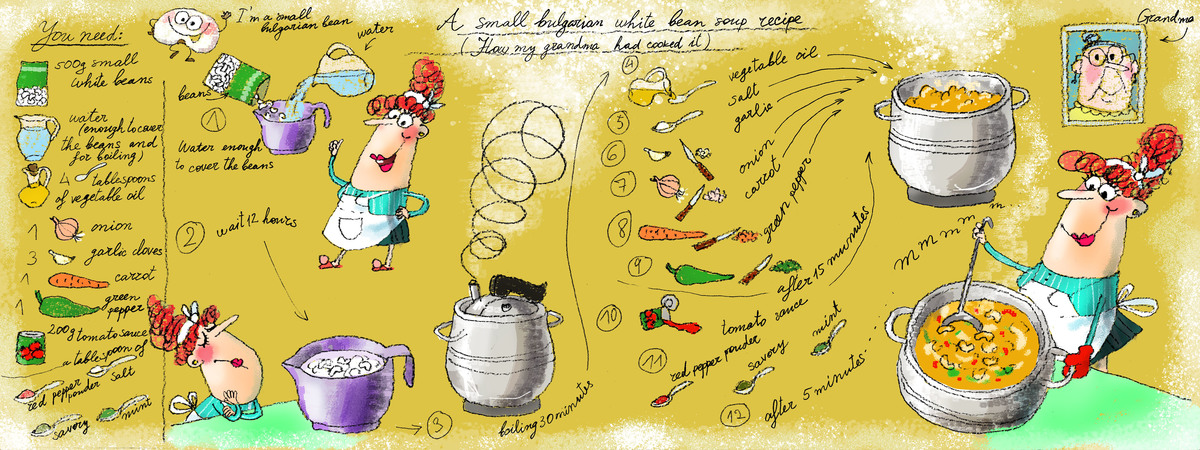 A small bulgarian white bean soup recipe
(How my grandma had cooked it)
Grandma
You need:
500g small
white beans
water
(enough to cover
the beans and
for boiling)
4 tablespoons
of vegetable oil
1 onion
3 garlic cloves
1 carrot
1 green
pepper
200g tomato sauce
a tablespoon of
red pepper
powder
salt
savory
mint
I'm a small
bulgarian bean
water
beans
1
Water enough
to cover the beans
2 wait 12 hours
3
boiling 30 minutes
4 vegetable oil
5 salt
6 garlic
7 onion
8 carrot
9 green pepper
after 15 munutes
10 tomato sauce
11 red pepper powder
savory
mint
12 after 5 minutes...
m m m m m...